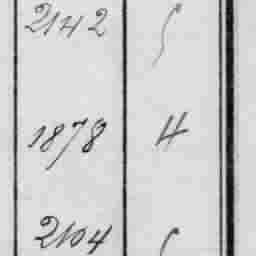 2142
1878 4
2104